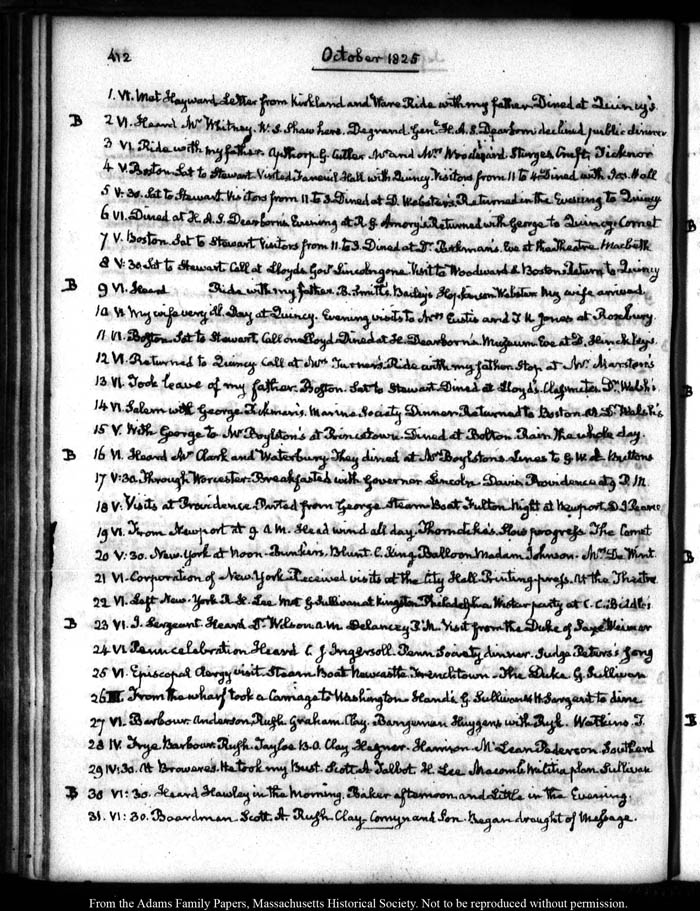 412
October 1825
1. VI. Met Hayward Letter from Kirkland and Ware Ride with my father. Dined at Quincy's.
B 2 VI. Heard Mr Whitney. W. S. Shaw here. Degrand. Genl. H. A. S. Dearborn declined public dinner
3 VI. Ride with my father. Apthorp. G. Cutler Mr and Mrs Woodward. Sturges. Cruft. Ticknor
4 V. Boston. Sat to Stewart Visited Faneuil Hall with Quincy. Visitors from 11 to 4. Dined with Jos. Hall
5 V:30. Sat to Stewart Visitors from 11 to 3. Dined at D. Webster's. Returned in the Evening to Quincy
6 VI. Dined at H. A. S. Dearborn's. Evening at R. G. Amory's. Returned with George to Quincy. Comet
7 V. Boston. Sat to Stewart Visitors from 11 to 3. Dined at Dr. Parkman's. Eve at the Theatre. Macbeth
8 V:30. Sat to Stewart Call at Lloyds. Govr Lincoln gone. Visit to Woodward & Boston. Return to Quincy
B 9 VI. Heard Ride with my father. B. Smith's. Bailey's Hopkinson Webster My wife arrived
10 VI. My wife very ill. Day at Quincy. Evening visits to Mrs Eustis and T. K. Jones at Roxbury.
11 VI. Boston. Sat to Stewart. Call on Lloyd. Dined at H. Dearborn's. Museum. Eve at D. Hinckleys.
12 VI. Returned to Quincy. Call at Mrs Turner's. Ride with my father. Stop at Mr Marston's
13 VI. Took leave of my father. Boston. Sat to Stewart. Dined at Lloyd's. Classmates. Dr Welsh's.
14 VI. Salem with George. Marine Society Dinner. Returned to Boston. at Dr Welsh's
15 V. With George to Mr Boylston's at Princetown. Dined at Bolton. Rain the whole day.
B 16 VI. Heard Mr Clark and Waterbury. They dined at Mr Boylston's. Lines to
17 V:30. Through Worcester. Breakfasted with Governor Lincoln. Davis. Providence at 9 P.M.
18 V. Visits at Providence. Parted from George. Steam-Boat Fulton. Night at Newport. D. J. Pearce
19 VI. From Newport at 9 A.M. Head wind all day. Thorndike's. Slow progress. The Comet
20 V:30. New York at Noon. Bunkers. Blunt. C. King. Balloon Madam Johnson. Mrs De Wint
21 VI. Corporation of New York. Received visits at the City Hall. Printing press. At the Theatre
22 VI. Left New-York R. H. Lee Met G. Sullivan at Kingston Philadelphia Wistar party at C. C. Biddle's
B 23 VI. J. Sergeant. Heard Dr Wilson A.M. Delancey P.M. Visit from the Duke of Saxe Weimar
24 VI. Penn celebration Heard C. J. Ingersoll. Penn Society dinner. Judge Peters's Song
25 VI. Episcopal Clergy visit. Steam Boat Newcastle. Frenchtown. The Duke. G. Sullivan
26 III. From the wharf took a Carriage to Washington. Hands. G. Sullivan & H. Sargent to dine
27 VI. Barbour. Anderson. Rush. Graham. Clay. Bangeman Huygens with Rush. Watkins. T
28 IV. Frye. Barbour. Rush. Tayloe B. O. Clay. Hagner. Harrison. McLean. Pederson. Southard
29 IV:30. At Browere's. He took my Bust. Scott A. Talbot. H. Lee Macomb. Militia plan. Sullivan
B 30 VI:30. Heard Hawley in the Morning. Baker afternoon. and Little in the Evening.
31. VI:30. Boardman. Scott. A. Rush. Clay. and Son. Began draught of Message.
From the Adams Family Papers, Massachusetts Historical Society. Not to be reproduced without permission.